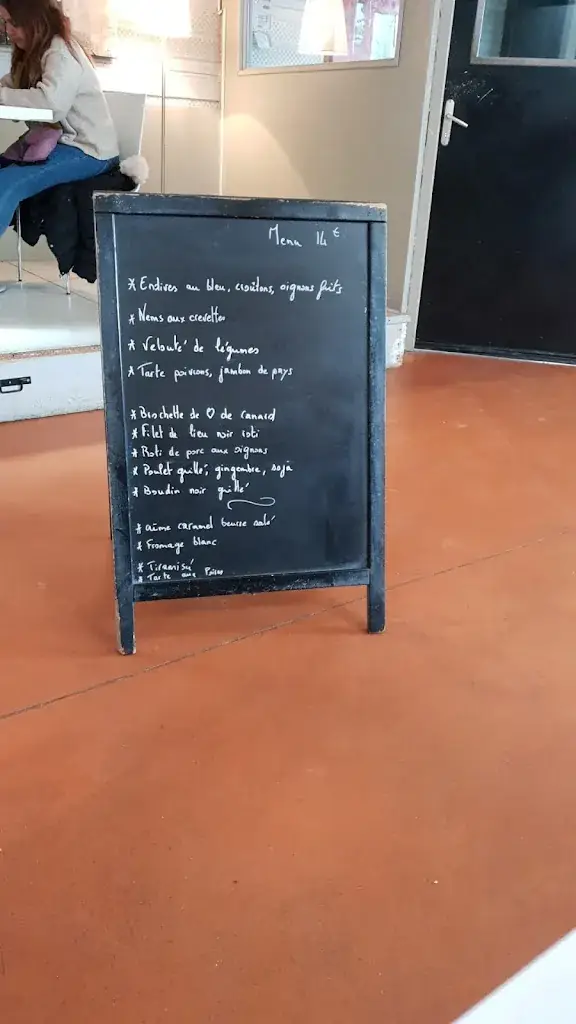 Menu 14 €
* Endives au bleu, croûtons, oignons frits
* Nems aux crevettes
* Velouté de légumes
* Tarte poivrons, jambon de pays
* Brochette de ♡ de canard
* Filet de lieu noir roti
* Roti de porc aux oignons
* Poulet grillé, gingembre, soja
* Boudin noir grillé
* crème caramel beurre salé
* Fromage blanc
* Tiramisu
* Tarte aux Poires